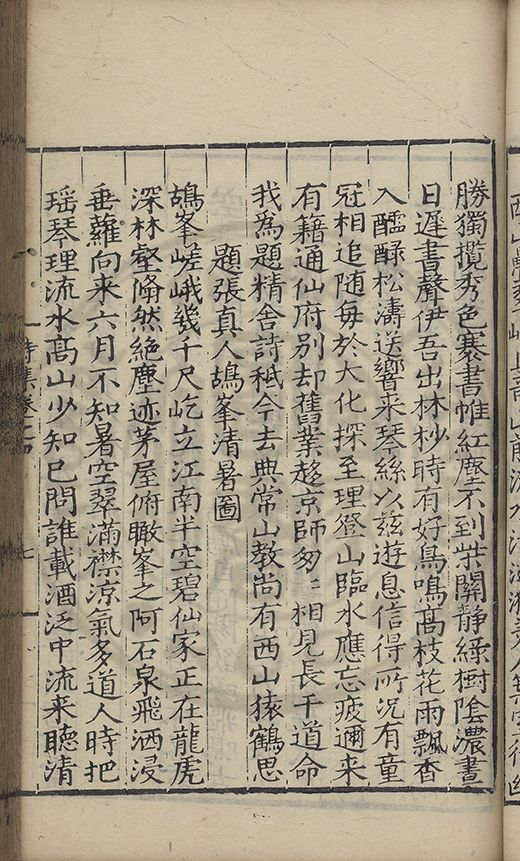 勝獨攬秀色褰書帷紅塵不到柴關靜綠樹陰濃晝
日遲書聲伊吾出林杪時有好鳥鳴髙枝花雨飄香
入醽醁松濤送響来琴絲以兹遊息信得所況有童
冠相追随每於大化探至理登山臨水應忘疲邇来
有籍通仙府别却舊業趍京師匆〻相見長干道命
我爲題精舍詩秪今去典常山教尚有西山猿鶴思
題張真人鴣峯清暑圖
鴣峯嵯峨幾千尺屹立江南半空碧仙家正在龍虎
深林壑翛然絶塵迹茅屋俯瞰峯之阿石泉飛洒浸
垂蘿向来六月不知暑空翠滿襟凉氣多道人時把
瑶琴理流水髙山少知已問誰載酒泛中流来聴清
七